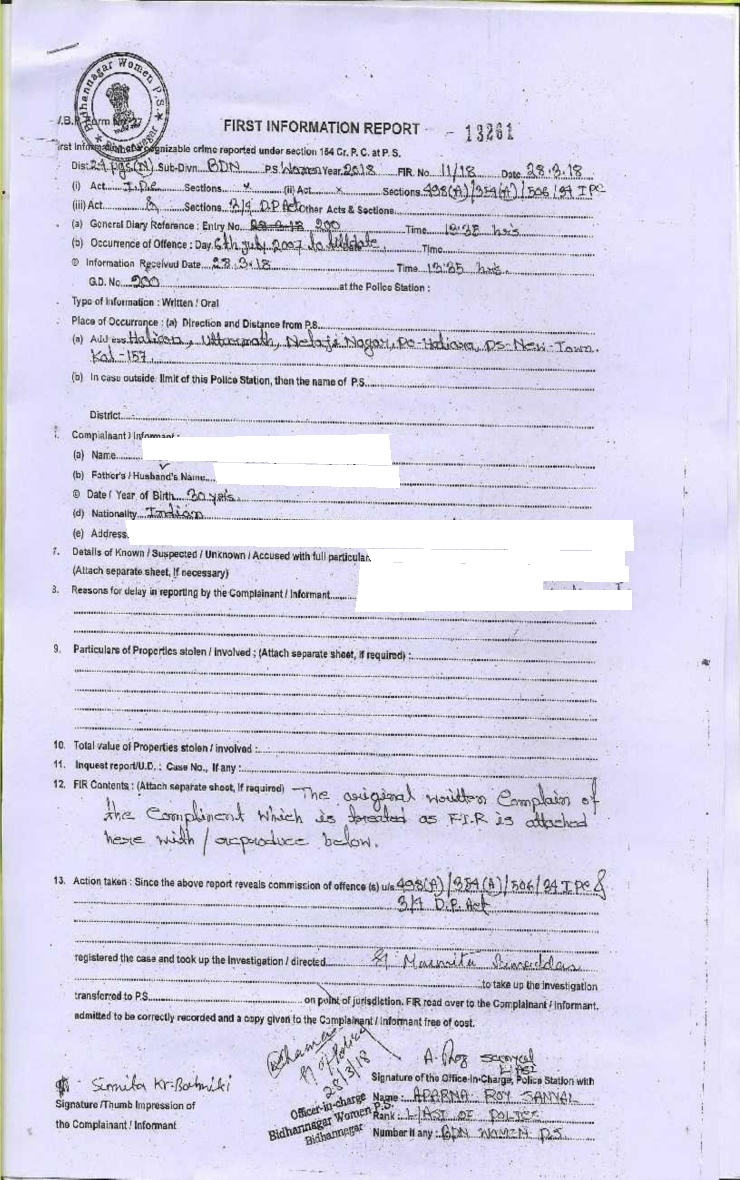 Bidhannagar Women P.S.
FIRST INFORMATION REPORT - 13261
First Information of a cognizable crime reported under section 154 Cr. P. C. at P. S.
Dist. 24 pgs(N) Sub-Divn. BDN P.S. Women Year 2018 FIR. No. 11/18 Date 28.3.18
(i) Act I.P.C Sections × (ii) Act × Sections 498(A)/354(A)/506/34 IPC
(iii) Act & Sections 3/4 D.P Act Other Acts & Sections
(a) General Diary Reference : Entry No. 200 Time
(b) Occurrence of Offence : Day 6th July 2007 to till date Time
© Information Received Date 28.3.18 Time hrs.
G.D. No. 200 at the Police Station :
Type of Information : Written / Oral
Place of Occurrence : (a) Direction and Distance from P.S.
(a) Address Hatiara, Uttarmath, Netaji Nagar, Po-Hatiara, PS-New-Town.
Kol-157.
(b) In case outside limit of this Police Station, then the name of P.S.
District
Complainant / Informant :
(a) Name
(b) Father's / Husband's Name
© Date / Year of Birth 30 yrs.
(d) Nationality Indian
(e) Address
7. Details of Known / Suspected / Unknown / Accused with full particular.
(Attach separate sheet, If necessary)
8. Reasons for delay in reporting by the Complainant / Informant
9. Particulars of Properties stolen / involved ; (Attach separate sheet, if required) :
10. Total value of Properties stolen / involved :
11. Inquest report/U.D. : Case No., If any :
12. FIR Contents : (Attach separate sheet, if required) The original written Complain of
the Complinent which is treated as F.I.R is attached
here with / reproduce below.
13. Action taken : Since the above report reveals commission of offence (s) u/s. 498(A)/354(A)/506/34 IPC &
3/4 D.P. Act
registered the case and took up the Investigation / directed
to take up the investigation
transferred to P.S. on point of jurisdiction. FIR read over to the Complainant / Informant.
admitted to be correctly recorded and a copy given to the Complainant / Informant free of cost.
28/3/18
Officer-in-charge
Bidhannagar Women P.S.
Bidhannagar
Signature /Thumb Impression of
the Complainant / Informant
A. Roy Sanyal
L/ASI
Signature of the Officer-In-Charge, Police Station with
Name : APARNA ROY SANYAL
Rank : L/ASI OF POLICE
Number if any : BDN WOMEN P.S.